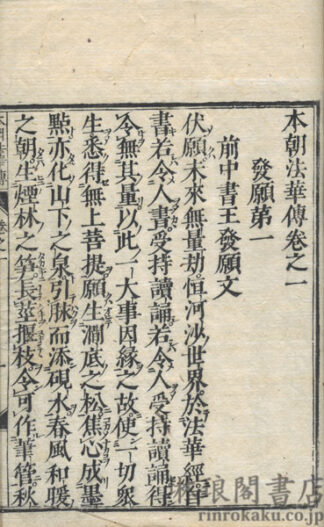 本朝法華傳卷之一
發願第一
前中書王發願文
伏願未來無量劫恒河沙世界於法華經自
書若令人書受持讀誦若令人受持讀誦得
令無其量以此一大事因緣之故使一切衆
生悉得無上菩提願生澗底之松焦心成墨
點亦化山下之泉引脉而添硯水春風和暖
之朝生煙林之笋長莖握枝令可作筆管秋
琳琅閣書店
www.rinrokaku.co.jp